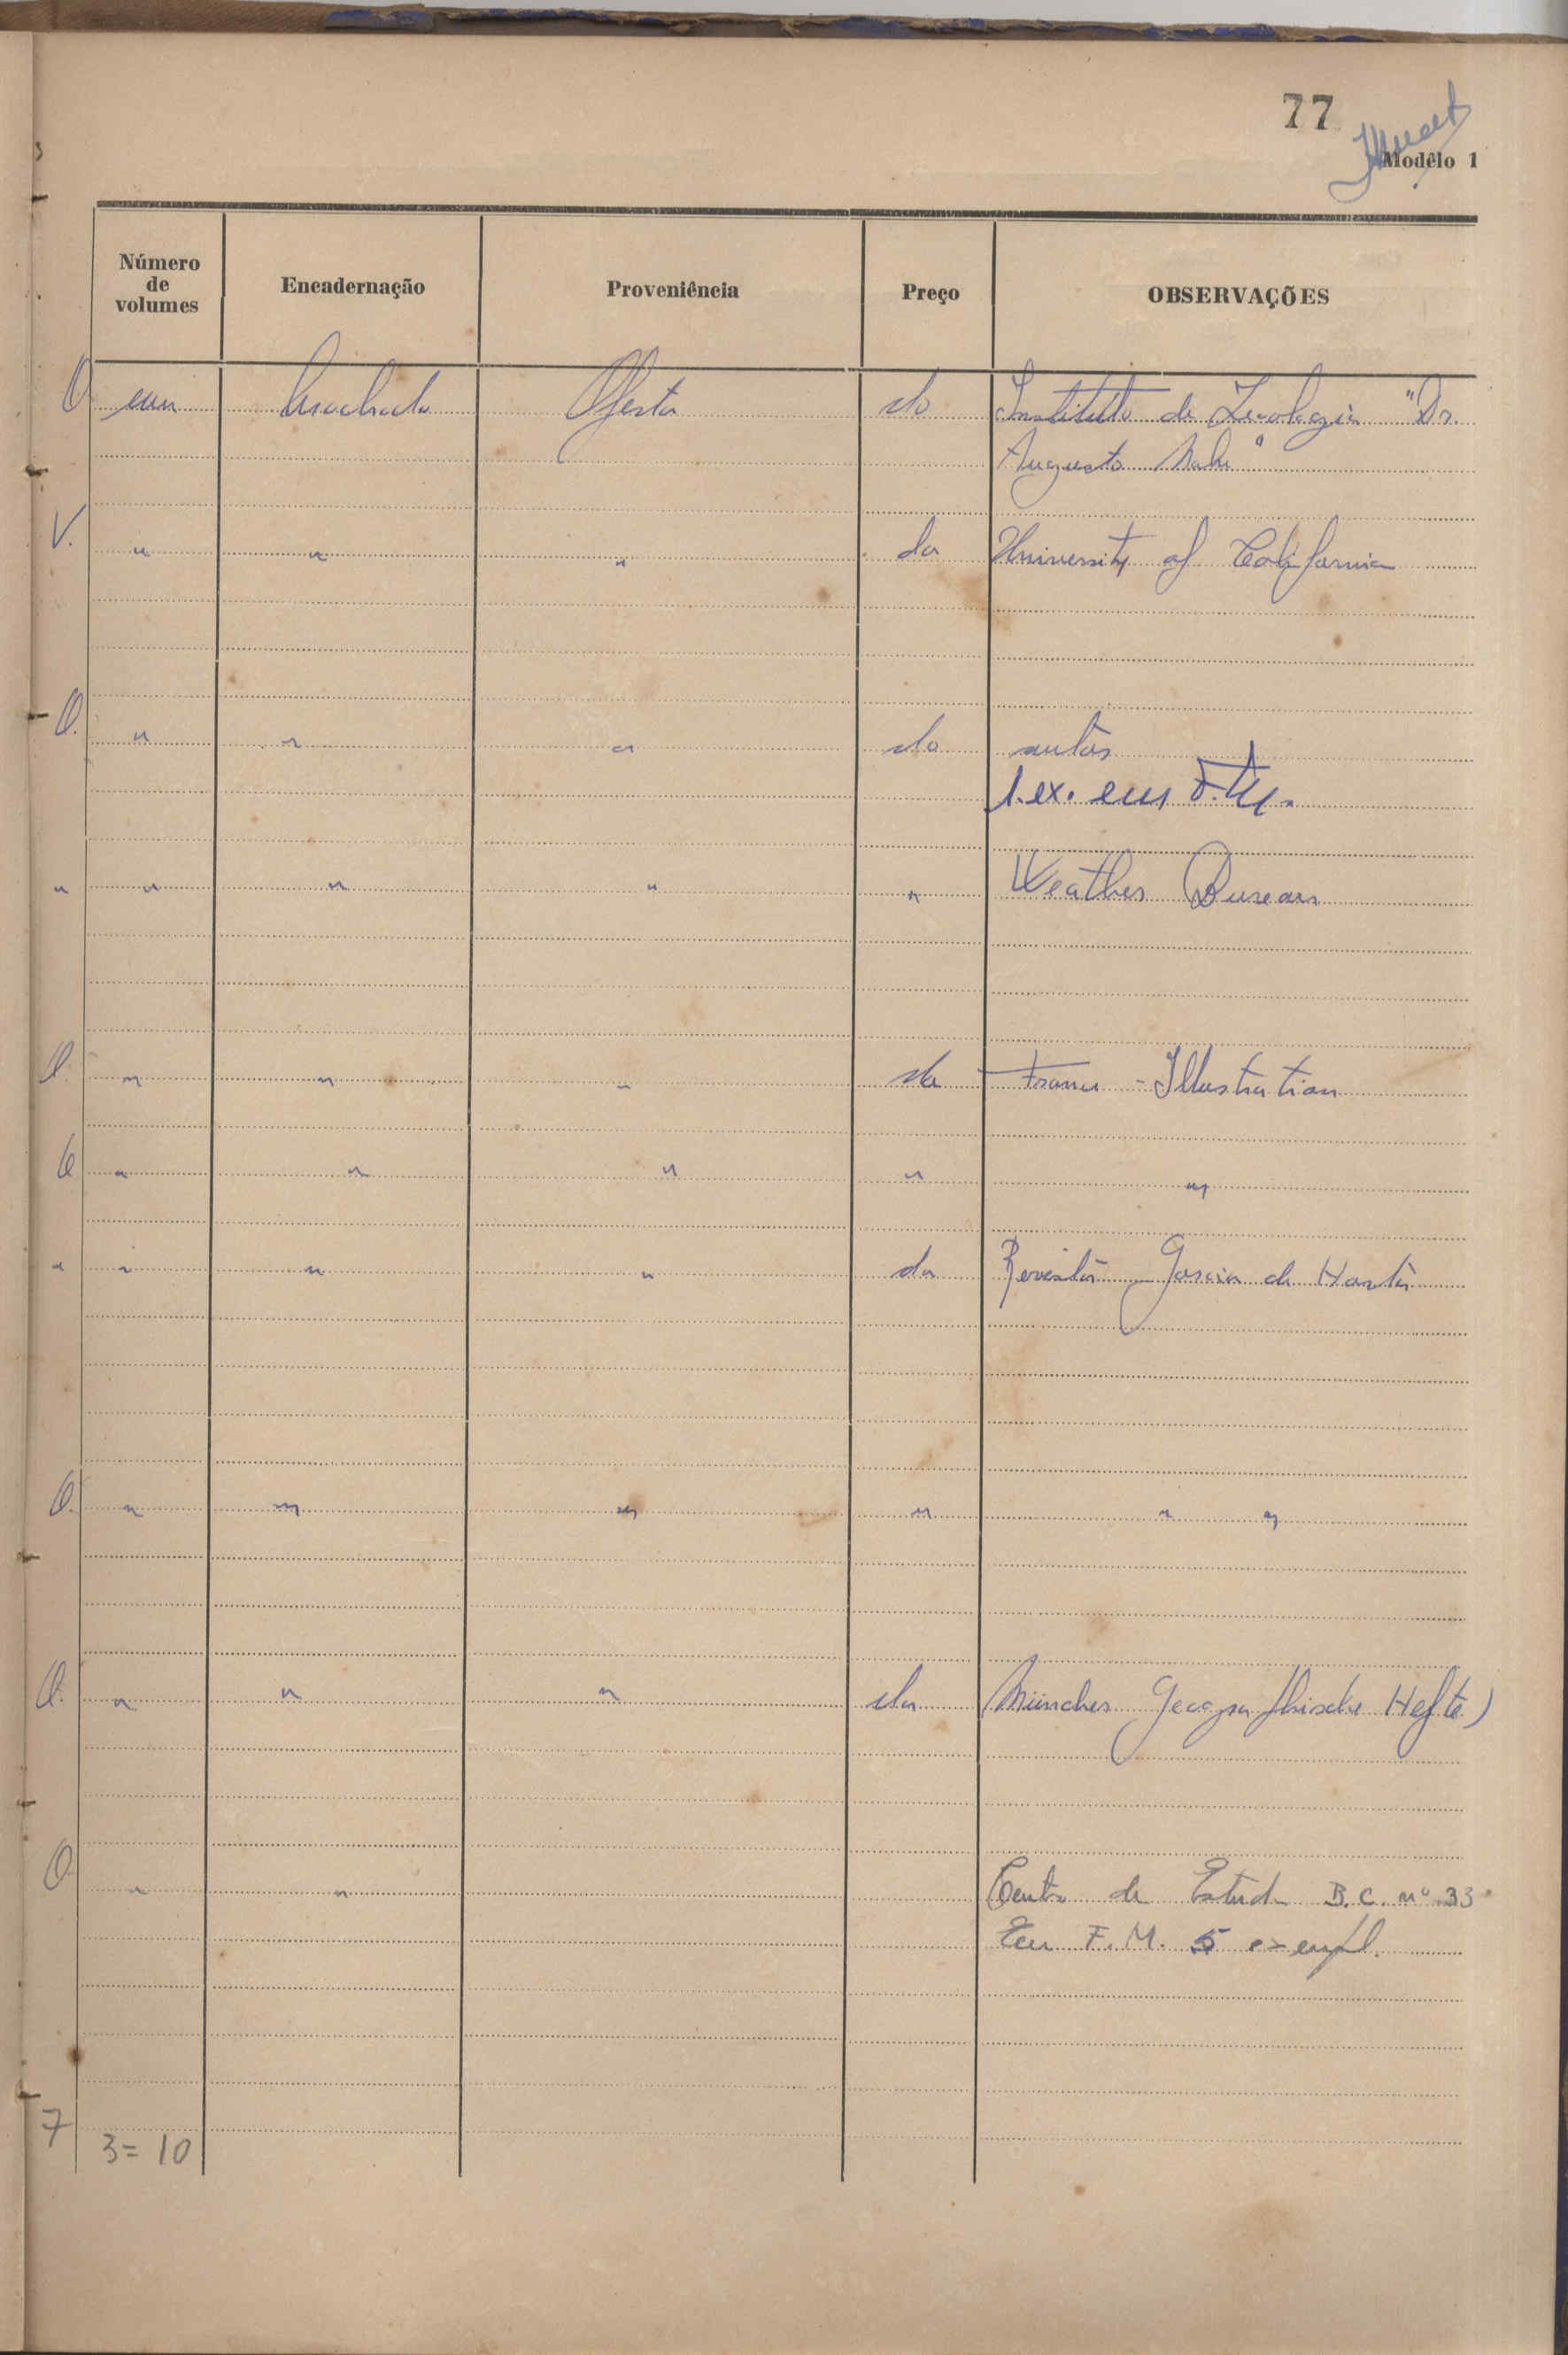 77
Modêlo 1
Número de volumes Encadernação Proveniência Preço OBSERVAÇÕES
O um Brochado Oferta do Instituto de Zoologia "Dr.
Augusto Nobre"
V. " " " da University of California
O. " " " do autor
1.ex. em F.M.
" " " " " Weather Bureau
O. " " " da France - Illustration
O " " " " "
" " " " da Revista Garcia de Horta
O. " " " " " "
O. " " " da Münchner Geographische Hefte)
O " " Centro de Estud. B.C. nº 33
Em F.M. 5 exempl.
7 3= 10